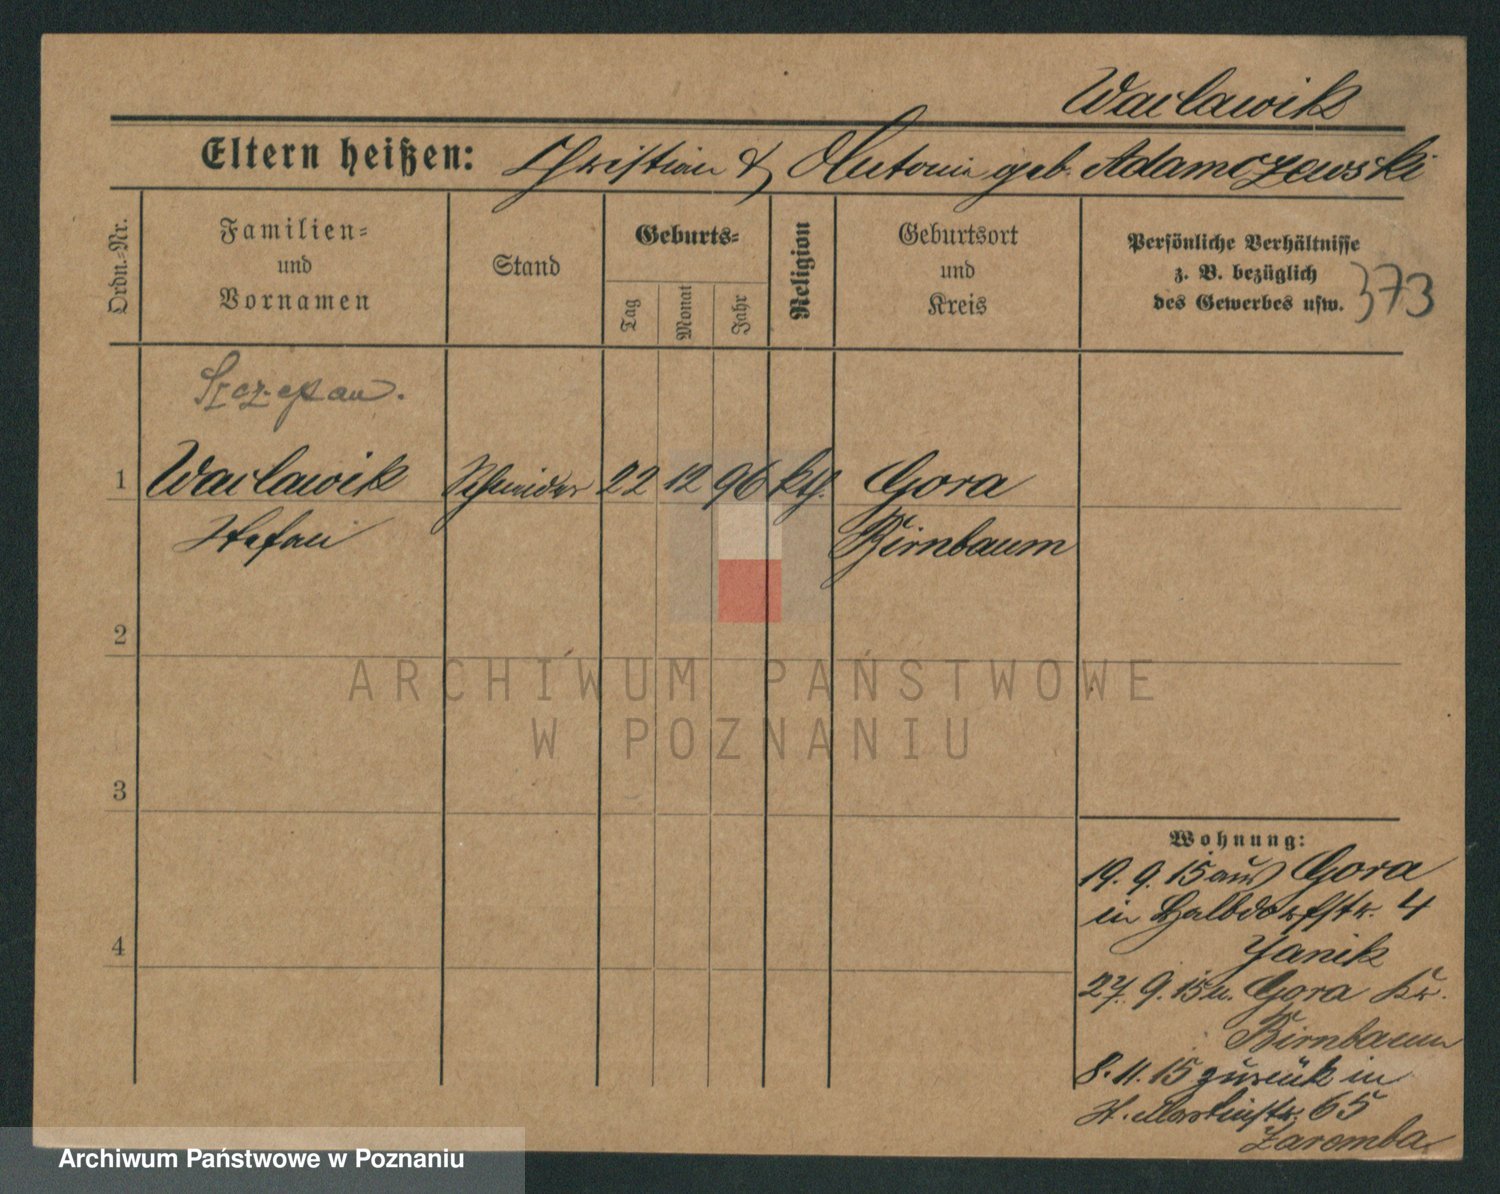 Waclawik
Eltern heißen: Christian & Antonie geb. Adamczewski
Ordn.-Nr.
Familien-
und
Vornamen
Stand
Geburts-
Tag
Monat
Jahr
Religion
Geburtsort
und
Kreis
Persönliche Verhältnisse
z. B. bezüglich
des Gewerbes usw.
373
Szczepan.
1 Waclawik Schneider 22 12 96 kth. Gora
Stefan Birnbaum
2
3
4
ARCHIWUM PAŃSTWOWE
W POZNANIU
Wohnung:
19. 9. 15 aus Gora
in Halbdorfstr. 4
Janik
27. 9. 15 n. Gora Kr.
Birnbaum
8. 11. 15 zurück in
St. Martinstr. 65
Zaremba
Archiwum Państwowe w Poznaniu